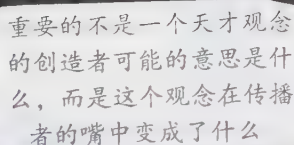 重要的不是一个天才观念
的创造者可能的意思是什
么，而是这个观念在传播
者的嘴中变成了什么